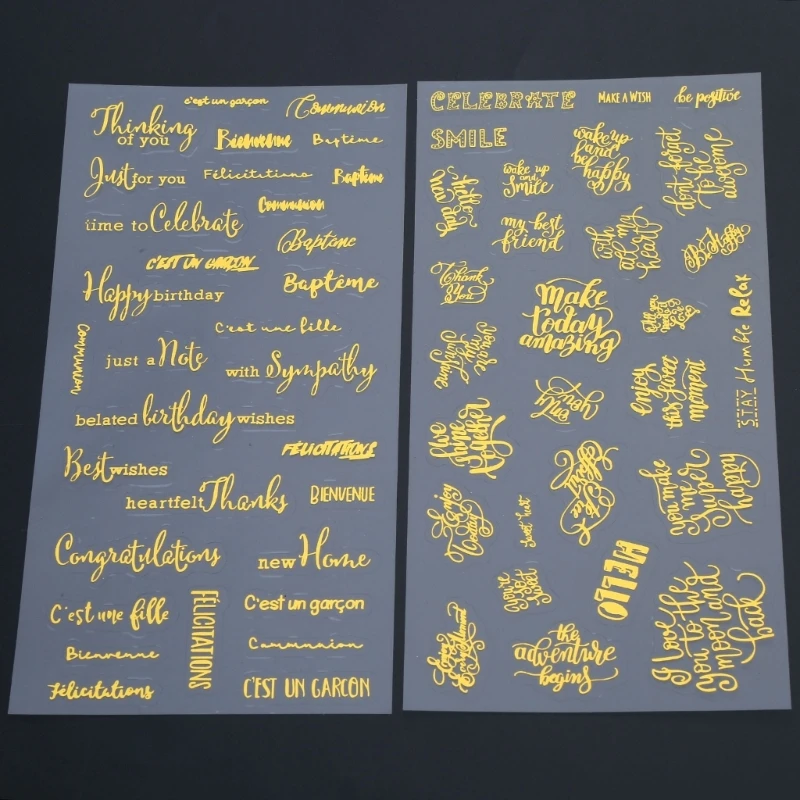 c'est un garçon
Communion
Thinking
of you
Bienvenue
Baptême
Just for you
Félicitations
Baptême
Communion
time to Celebrate
Baptême
C'EST UN GARÇON
Happy birthday
Baptême
C'est une fille
Communion
just a Note
with Sympathy
belated birthday wishes
FÉLICITATIONS
Best wishes
heartfelt Thanks
BIENVENUE
Congratulations
new Home
C'est une fille
FÉLICITATIONS
C'est un garçon
Bienvenue
Communion
Félicitations
C'EST UN GARÇON
CELEBRATE
MAKE A WISH
be positive
SMILE
wake up
and
be
happy
don't forget
to be
awesome
hello
new day
wake up
and
Smile
my best
friend
with
all my
heart
Be Happy
Thank
you
make
today
amazing
Relax
Humble
STAY
you are
my
sunshine
enjoy
this sweet
moment
live
shine
together
Enjoy
Today
sweet heart
you make
me
super
happy
HELLO
you're
so
sweet
the
adventure
begins
I love
you to the
moon and
back